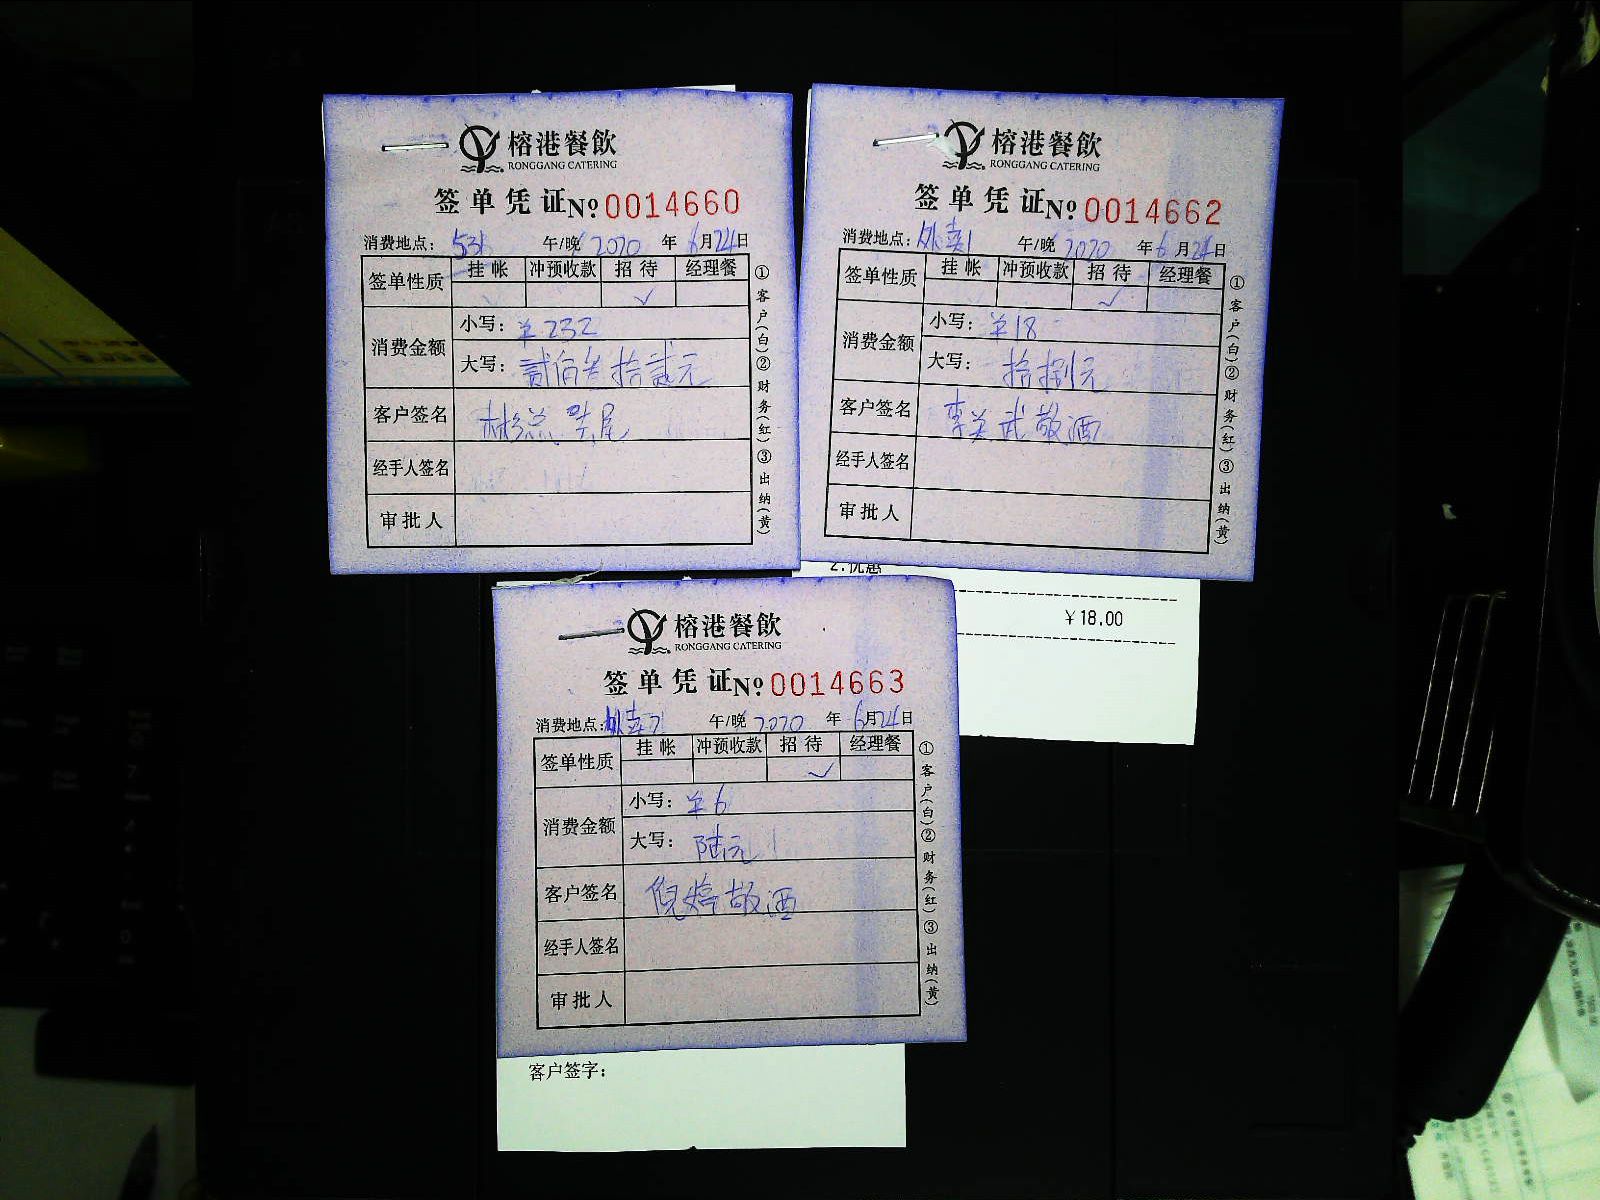 榕港餐飲
RONGGANG CATERING
签单凭证№ 0014660
消费地点: 531 午/晚 2020 年 6月24日
签单性质 挂帐 冲预收款 招待 经理餐
✓
消费金额 小写: ¥232
大写: 贰佰叁拾贰元
客户签名 林总
经手人签名
审批人
①客户(白)②财务(红)③出纳(黄)
榕港餐飲
RONGGANG CATERING
签单凭证№ 0014662
消费地点: 外卖1 午/晚 2020 年 6月24日
签单性质 挂帐 冲预收款 招待 经理餐
✓
消费金额 小写: ¥18
大写: 拾捌元
客户签名 李关武敬酒
经手人签名
审批人
①客户(白)②财务(红)③出纳(黄)
2.优惠
¥18.00
榕港餐飲
RONGGANG CATERING
签单凭证№ 0014663
消费地点: 外卖21 午/晚 2020 年 6月24日
签单性质 挂帐 冲预收款 招待 经理餐
✓
消费金额 小写: ¥6
大写: 陆元
客户签名 倪婷敬酒
经手人签名
审批人
①客户(白)②财务(红)③出纳(黄)
客户签字: